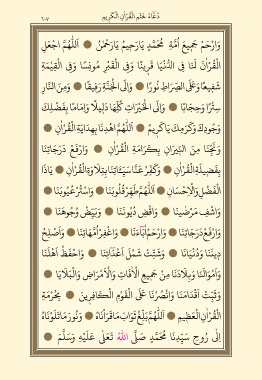 دُعَاءُ خَتْمِ الْقُرْاٰنِ الْكَرِيمِ
٦٠٧
وَارْحَمْ جَمِيعَ اُمَّةِ مُحَمَّدٍ يَارَحِيمُ يَارَحْمٰنُ ● اَللّٰهُمَّ اجْعَلِ
الْقُرْاٰنَ لَنَا فِى الدُّنْيَا قَرِينًا وَفِى الْقَبْرِ مُونِسًا وَفِى الْقِيٰمَةِ
شَفِيعًا وَعَلَى الصِّرَاطِ نُورًا ● وَاِلَى الْجَنَّةِ رَفِيقًا ● وَمِنَ النَّارِ
سِتْرًا وَحِجَابًا ● وَاِلَى الْخَيْرَاتِ كُلِّهَا دَلِيلًا وَاِمَامًا بِفَضْلِكَ
وَجُودِكَ وَكَرَمِكَ يَاكَرِيمُ ● اَللّٰهُمَّ اهْدِنَا بِهِدَايَةِ الْقُرْاٰنِ ●
وَنَجِّنَا مِنَ النِّيرَانِ بِكَرَامَةِ الْقُرْاٰنِ ● وَارْفَعْ دَرَجَاتِنَا
بِفَضِيلَةِ الْقُرْاٰنِ ● وَكَفِّرْ عَنَّا سَيِّئَاتِنَا بِتِلَاوَةِ الْقُرْاٰنِ ● يَاذَا
الْفَضْلِ وَالْاِحْسَانِ ● اَللّٰهُمَّ طَهِّرْ قُلُوبَنَا ● وَاسْتُرْ عُيُوبَنَا ●
وَاشْفِ مَرْضٰينَا ● وَاقْضِ دُيُونَنَا ● وَبَيِّضْ وُجُوهَنَا ●
وَارْفَعْ دَرَجَاتِنَا ● وَارْحَمْ اٰبَاءَنَا ● وَاغْفِرْ اُمَّهَاتِنَا ● وَاَصْلِحْ
دِينَنَا وَدُنْيَانَا ● وَشَتِّتْ شَمْلَ اَعْدَائِنَا ● وَاحْفَظْ اَهْلَنَا
وَاَمْوَالَنَا وَبِلَادَنَا مِنْ جَمِيعِ الْاٰفَاتِ وَالْاَمْرَاضِ وَالْبَلَايَا ●
وَثَبِّتْ اَقْدَامَنَا وَانْصُرْنَا عَلَى الْقَوْمِ الْكَافِرِينَ ● بِحُرْمَةِ
الْقُرْاٰنِ الْعَظِيمِ ● اَللّٰهُمَّ بَلِّغْ ثَوَابَ مَاقَرَأْنَاهُ ● وَنُورَ مَاتَلَوْنَاهُ
اِلٰى رُوحِ سَيِّدِنَا مُحَمَّدٍ صَلَّى اللّٰهُ تَعَالٰى عَلَيْهِ وَسَلَّمَ ●